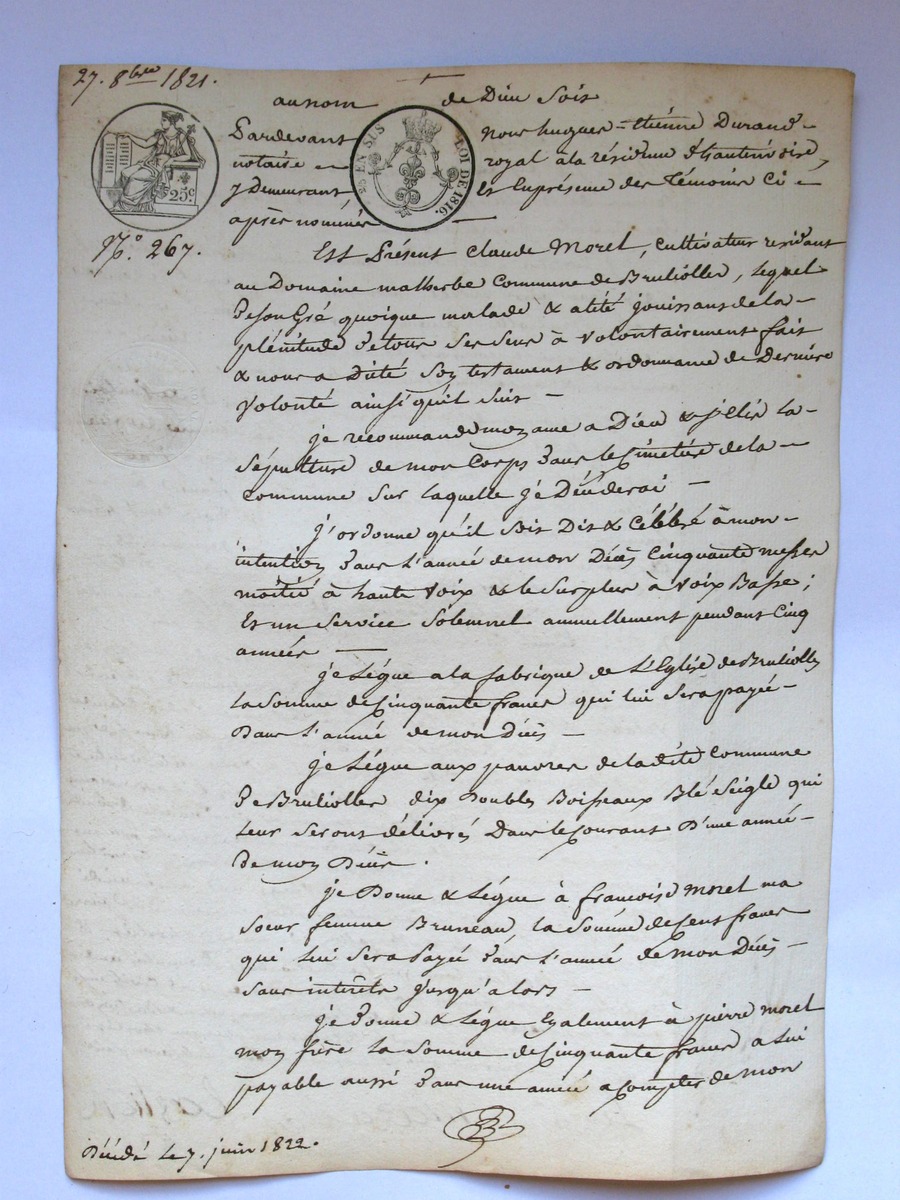 27. 8bre 1821.
au nom de Dieu soit
Pardevant Nous hugues-étienne Durand
notaire royal à la résidence d'hauterivoire,
y demeurant Et En présence des Témoins Ci
après nommés
25c.
25 EN SUS LOI DE 1816.
N.° 267.
Est Présent Claude Morel, Cultivateur residant
au Domaine malherbe Commune de Brulioller, lequel
de son Gré quoique malade & alité jouissant de la
plénitude de tous ses sens à volontairement fait
& nous a Dicté son testament & ordonnance de Dernière
volonté ainsi qu'il suit
je recommande mon ame a Dieu & j'élis la
sépulture de mon Corps dans le Cimetière de la
Commune sur laquelle je Décéderai
j'ordonne qu'il soit Dit & Célébré à mon
intention dans l'année de mon Décès Cinquante messes
moitié à haute voix & le surplus à voix Basse;
Et un service solemnel annuellement pendant Cinq
années
je Lègue a la fabrique de L'Eglise de Brulioller
la somme de Cinquante francs qui lui sera payée
Dans l'année de mon Décès
je Lègue aux pauvres de la dite Commune
de Brulioller dix Doubles Boisseaux Blé seigle qui
leur seront délivrés Dans le Courant D'une année
de mon Décès.
je Donne & Lègue à francoise Morel ma
soeur femme Bruneau, la somme de Cent francs
qui lui sera payée dans l'année de mon Décès
sans intérêts jusqu'alors
je Donne & Lègue Egalement à pierre morel
mon frère la somme de Cinquante francs a lui
payable aussi dans une année a Compter de mon
Décédé le 7. juin 1822.